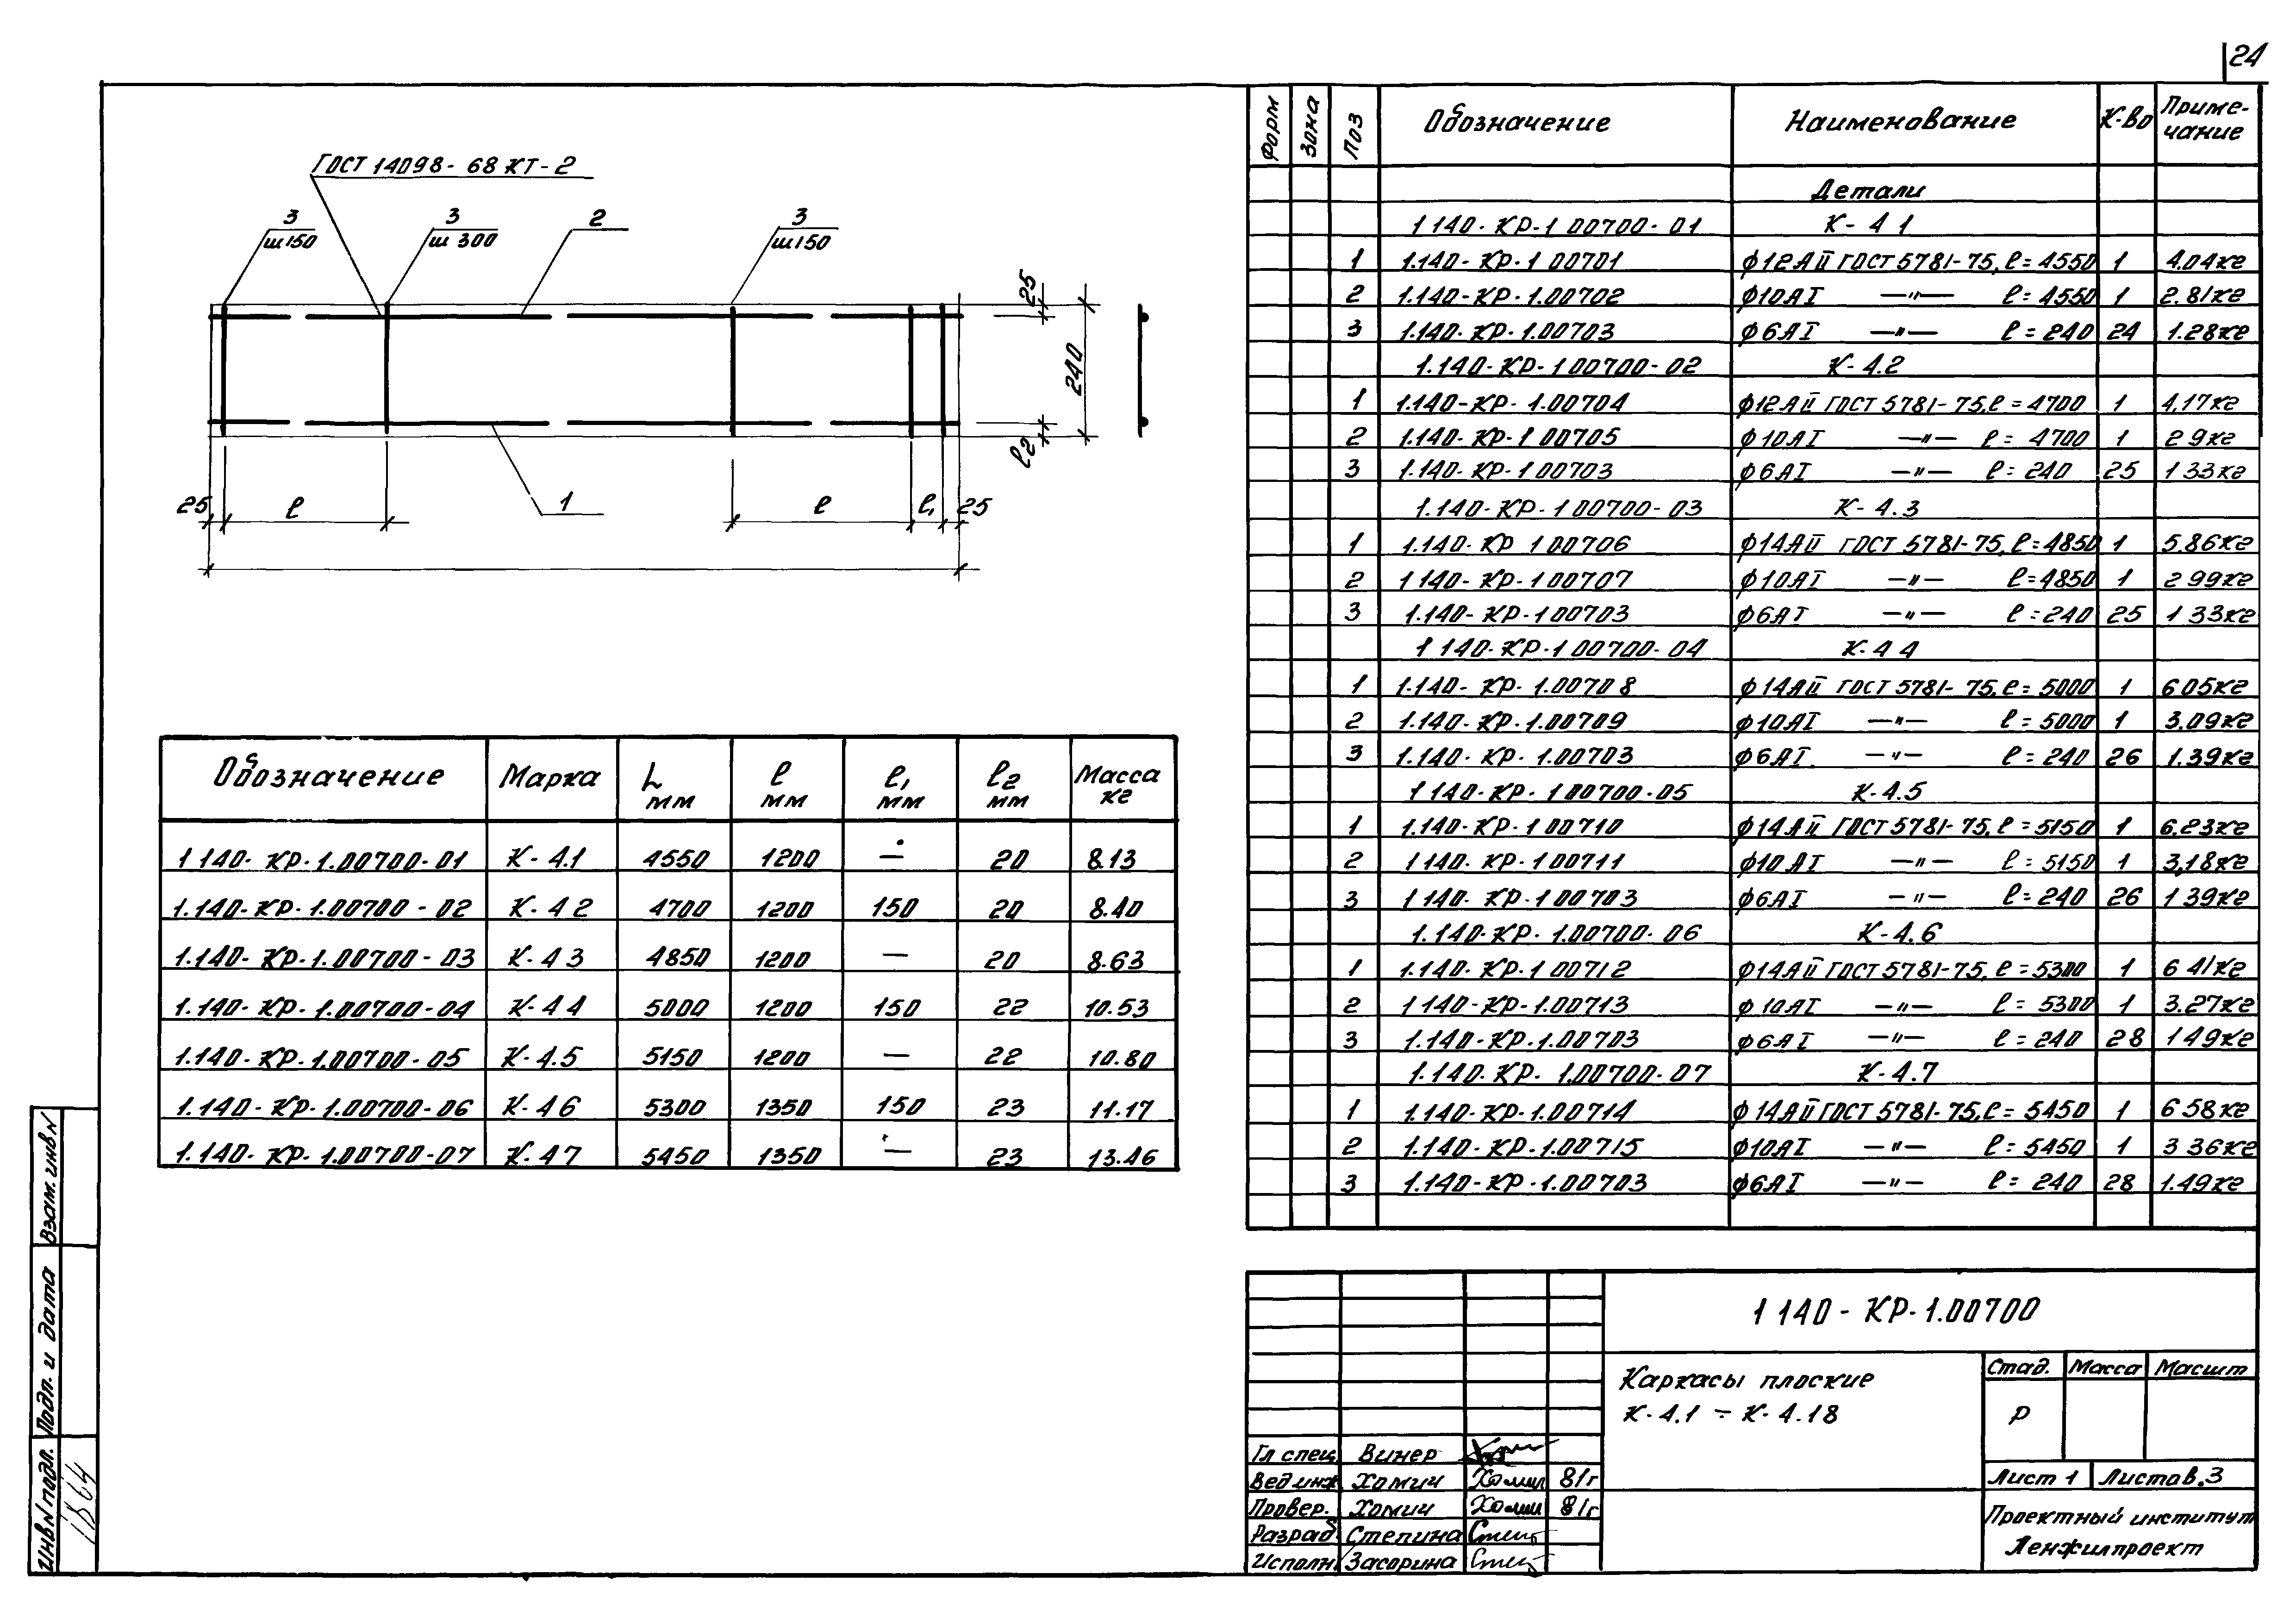 24
ГОСТ 14098-68 КТ-2
3
ш150
3
ш 300
2
3
ш150
25
240
l2
25
l
l
l1
25
1
Обозначение Марка L мм l мм l1 мм l2 мм Масса кг
1 140- КР-1.00700-01 К-4.1 4550 1200 — 20 8.13
1.140-КР-1.00700-02 К-4 2 4700 1200 150 20 8.40
1.140-КР-1.00700-03 К-4 3 4850 1200 — 20 8.63
1.140-КР-1.00700-04 К-4 4 5000 1200 150 22 10.53
1.140-КР-1.00700-05 К-4.5 5150 1200 — 22 10.80
1.140-КР-1.00700-06 К-4 6 5300 1350 150 23 11.17
1.140-КР-1.00700-07 К-4 7 5450 1350 — 23 13.46
Форм Зона Поз Обозначение Наименование К-во Приме-чание
Детали
1 140-КР-1 00700-01 К-4 1
1 1.140-КР-1 00701 ф12АII ГОСТ 5781-75, l=4550 1 4.04кг
2 1.140-КР-1.00702 ф10АI —"— l=4550 1 2.81кг
3 1.140-КР-1.00703 ф6АI —"— l=240 24 1.28кг
1.140-КР-1 00700-02 К-4.2
1 1.140-КР-1.00704 ф12АII ГОСТ 5781-75, l=4700 1 4,17кг
2 1.140-КР-1 00705 ф10АI —"— l=4700 1 2 9кг
3 1.140-КР-1 00703 ф6АI —"— l=240 25 1 33кг
1.140-КР-1 00700-03 К-4.3
1 1.140-КР 1 00706 ф14АII ГОСТ 5781-75, l=4850 1 5.86кг
2 1 140-КР-1 00707 ф10АI —"— l=4850 1 2 99кг
3 1.140-КР-1 00703 ф6АI —"— l=240 25 1 33кг
1 140-КР-1 00700-04 К-4 4
1 1.140-КР-1.00708 ф14АII ГОСТ 5781-75, l=5000 1 6 05кг
2 1.140-КР-1.00709 ф10АI —"— l=5000 1 3.09кг
3 1.140-КР-1.00703 ф6АI —"— l=240 26 1.39кг
1 140-КР-1 00700-05 К-4.5
1 1.140-КР-1 00710 ф14АII ГОСТ 5781-75, l=5150 1 6,23кг
2 1 140-КР-1 00711 ф10АI —"— l=5150 1 3,18кг
3 1 140-КР-1 00703 ф6АI —"— l=240 26 1 39кг
1.140-КР-1.00700-06 К-4.6
1 1.140-КР-1 00712 ф14АII ГОСТ 5781-75, l=5300 1 6 41кг
2 1 140-КР-1.00713 ф10АI —"— l=5300 1 3.27кг
3 1.140-КР-1.00703 ф6АI —"— l=240 28 1 49кг
1.140-КР-1.00700-07 К-4.7
1 1.140-КР-1.00714 ф14АII ГОСТ 5781-75, l=5450 1 6 58кг
2 1.140-КР-1.00715 ф10АI —"— l=5450 1 3 36кг
3 1.140-КР-1.00703 ф6АI —"— l=240 28 1.49кг
1 140-КР-1.00700
Каркасы плоские
К-4.1 ÷ К-4.18
Стад. Масса Масшт
Р
Лист 1 Листов.3
Проектный институт
Ленжилпроект
Гл спец. Винер
Вед инж Хомич Хомич 81г
Провер. Хомич Хомич 81г
Разраб. Степина
Исполн. Засорина
Взам. инв N
Подп. и дата
Инв N подл.